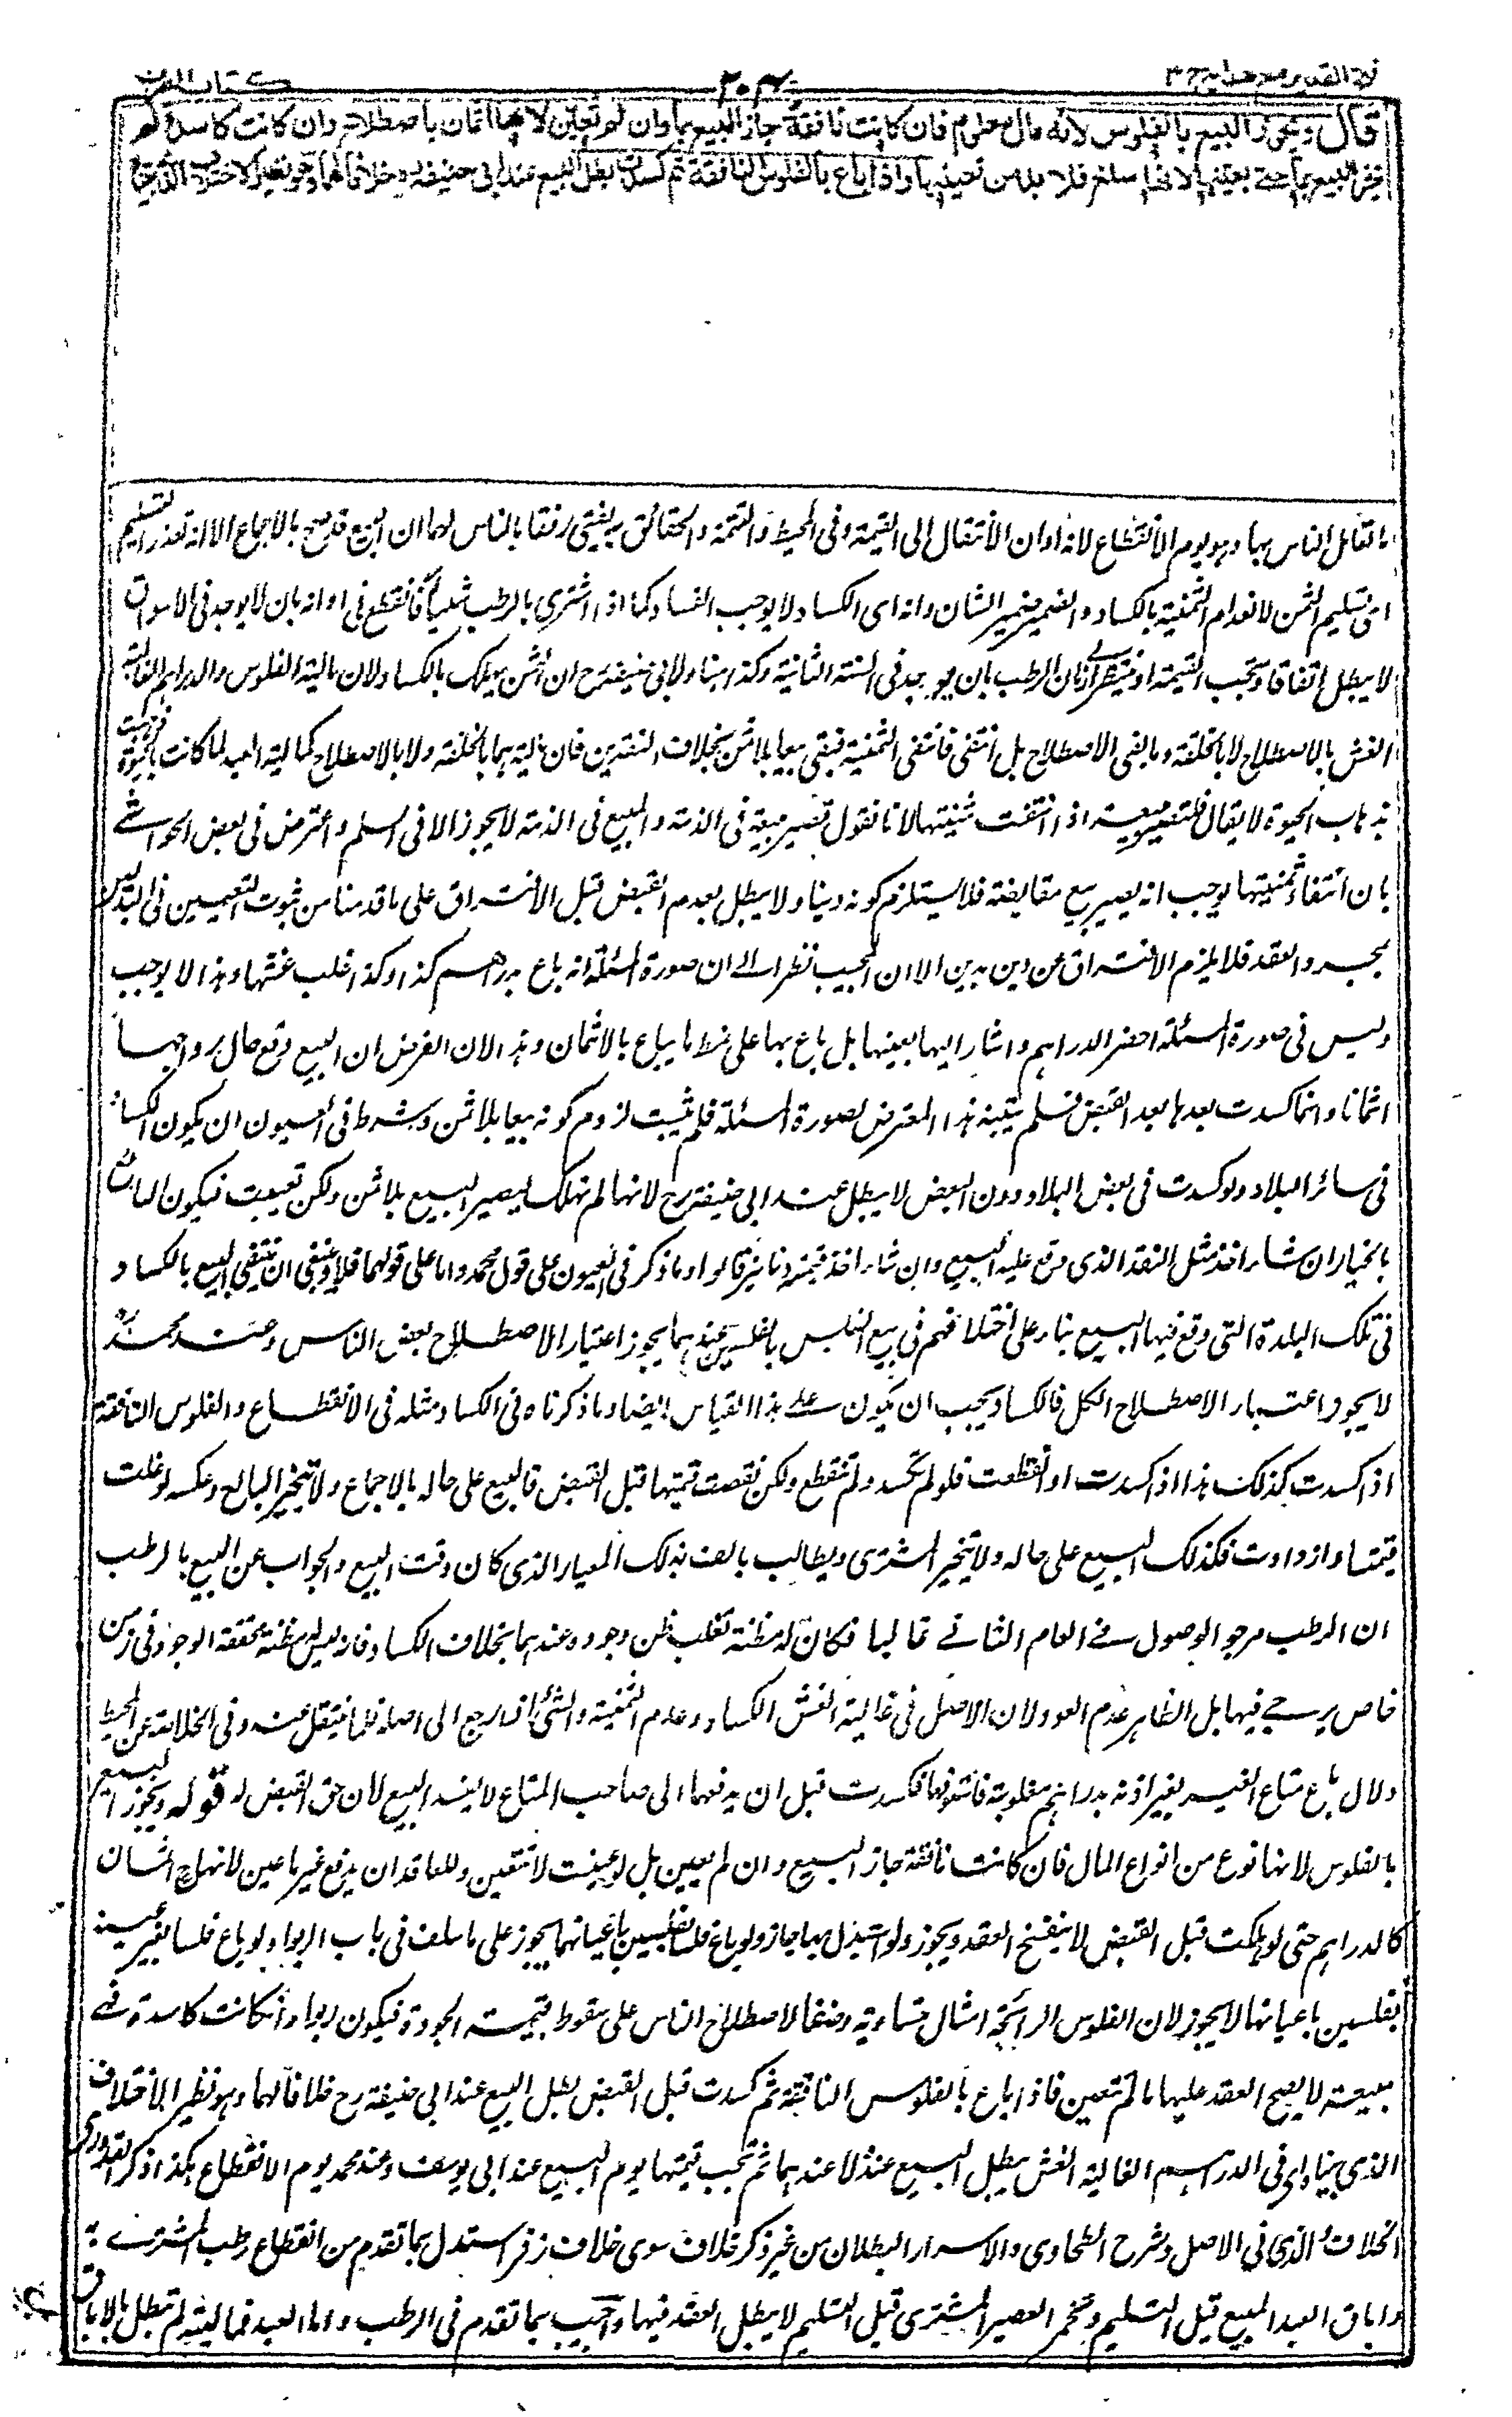 فتح القدير مع هدايه ج ٣
٣٠٤
كتاب الصرف
قال ويجوز البيع بالفلوس لانه مال معلوم فان كانت نافقة جاز البيع بها وان لم تتعين لانها اثمان بالاصطلاح وان كانت كاسدة لم
يجز البيع بها حتى يعينها لانها سلع فلا بد من تعيينها واذا باع بالفلوس النافقة ثم كسدت بطل البيع عند ابي حنيفة رح خلافا لهما وهو نظير الاختلاف الذي بيناه
ما تعامل الناس بها وهو يوم الانقطاع لانه اوان الانتقال الى القيمة وفي المحيط والتتمة والحقائق به يفتى رفقا بالناس لهما ان البيع قد صح بالاجماع الا انه تعذر التسليم
اى تسليم الثمن لانعدام الثمنية بالكساد والضمير ضمير الشان وانه اى الكساد لا يوجب الفساد كما اذا اشترى بالرطب شيأ فانقطع في اوانه بان لا يوجد في الاسواق
لا يبطل اتفاقا وتجب القيمة او ينتظر زمان الرطب بان يوجد في السنة الثانية وكذا هنا ولابي حنيفة رح ان الثمن يهلك بالكساد لان مالية الفلوس والدراهم الغالبة
الغش بالاصطلاح لا بالخلقة وما بقى الاصطلاح بل انتفى فانتفى الثمنية فبقى بيعا بلا ثمن بخلاف النقدين فان مالية بهما بالخلقة ولا بالاصطلاح كمالية العبد لما كانت بالحيوة فذهبت
بذهاب الحيوة لا يقال فلتصير مبيعة اذا انتفت ثمنيتها لانا نقول تصير مبيعة في الذمة والمبيع في الذمة لا يجوز الا في السلم واعترض في بعض الحواشى
بان انتفاء ثمنيتها يوجب انه يصير بيع مقايضة فلا يستلزم كونه دينا ولا يبطل بعدم القبض قبل الافتراق على ما قدمنا من ثبوت التعيين في البدلين
بمجرد العقد فلا يلزم الافتراق عن دين بدين الا ان المجيب نظر الى ان صورة المسئلة انه باع بدراهم كذا وكذا غلب غشها وهذا لا يوجب
وليس في صورة المسئلة احضر الدراهم واشار اليها بعينها بل باع بها على نمط ما يباع بالاثمان وهذا لان الفرض ان البيع وقع حال رواجها
اثمانا وانما كسدت بعدها بعد القبض فلم يتنبه هذا المعترض لصورة المسئلة فلم يثبت لزوم كونه بيعا بلا ثمن وشرط في العيون ان يكون الكساد
في سائر البلاد ولو كسدت في بعض البلاد دون البعض لا يبطل عند ابي حنيفة رح لانها لم تهلك ليصير البيع بلا ثمن ولكن تعيبت فيكون البائع
بالخيار ان شاء اخذ مثل النقد الذي وقع عليه البيع وان شاء اخذ قيمته دنانير قالوا وما ذكر في العيون على قول محمد واما على قولهما فلا وينبغي ان ينتفي البيع بالكساد
في تلك البلدة التي وقع فيها البيع بناء على اختلافهم في بيع الفلس بالفلسين عندهما يجوز اعتبار الاصطلاح بعض الناس وعند محمد رح
لا يجوز اعتبار الاصطلاح الكل فالكساد يجب ان يكون على هذا القياس ايضا وما ذكرناه في الكساد مثله في الانقطاع والفلوس النافقة
اذا كسدت كذلك هذا اذا كسدت او انقطعت فلو لم تكسد ولم تنقطع ولكن نقصت قيمتها قبل القبض فالبيع على حاله بالاجماع ولا يتخير البائع وعكسه لو غلت
قيمتها وازدادت فكذلك البيع على حاله ولا يتخير المشترى ويطالب بالنقد بذلك المعيار الذي كان وقت البيع والجواب عن البيع بالرطب
ان الرطب مرجو الوصول في العام الثاني غالبا فكان له مظنة تغلب ظن وجوده عندهما بخلاف الكساد فانه ليس له مظنة محققة الوجود في زمن
خاص يرجى فيها بل الظاهر عدم العود لان الاصل في غالبة الغش الكساد وعدم الثمنية والشئ اذا رجع الى اصله قلما ينتقل عنه وفي الخلاصة عن المحيط
دلال باع متاع الغير بغير اذنه بدراهم مغلوبة فاستوفاها فكسدت قبل ان يدفعها الى صاحب المتاع لا يفسد البيع لان حق القبض له قوله ويجوز البيع
بالفلوس لانها نوع من انواع المال فان كانت نافقة جاز البيع وان لم يعين بل لو عينت لا تتعين وللعاقد ان يدفع غير ما عين لانها ح اثمان
كالدراهم حتى لو هلكت قبل القبض لا ينفسخ العقد ويجوز ولو استبدل بها جاز ولو باع فلسا بفلسين باعيانهما يجوز على ما سلف في باب الربوا ولو باع فلسا بغير عينه
بفلسين باعيانهما لا يجوز لان الفلوس الرائجة امثال متساوية وضعا لاصطلاح الناس على سقوط قيمة الجودة فيكون ربوا وان كانت كاسدة فهى
مبيعة لا يصح العقد عليها ما لم تتعين فاذا باع بالفلوس النافقة ثم كسدت قبل القبض بطل البيع عند ابي حنيفة رح خلافا لهما وهو نظير الاختلاف
الذي بيناه اى في الدراهم الغالبة الغش يبطل البيع عنده لا عندهما ثم تجب قيمتها يوم البيع عند ابي يوسف وعند محمد يوم الانقطاع هكذا ذكر القدورى
الخلاف والذي في الاصل وشرح الطحاوى والاسرار البطلان من غير ذكر خلاف سوى خلاف زفر استدل بما تقدم من انقطاع رطب المشترى به
واباق العبد المبيع قبل التسليم وتخمر العصير المشترى قبل التسليم لا يبطل العقد فيها واجيب بما تقدم في الرطب واما العبد فماليته لم تبطل بالاباق